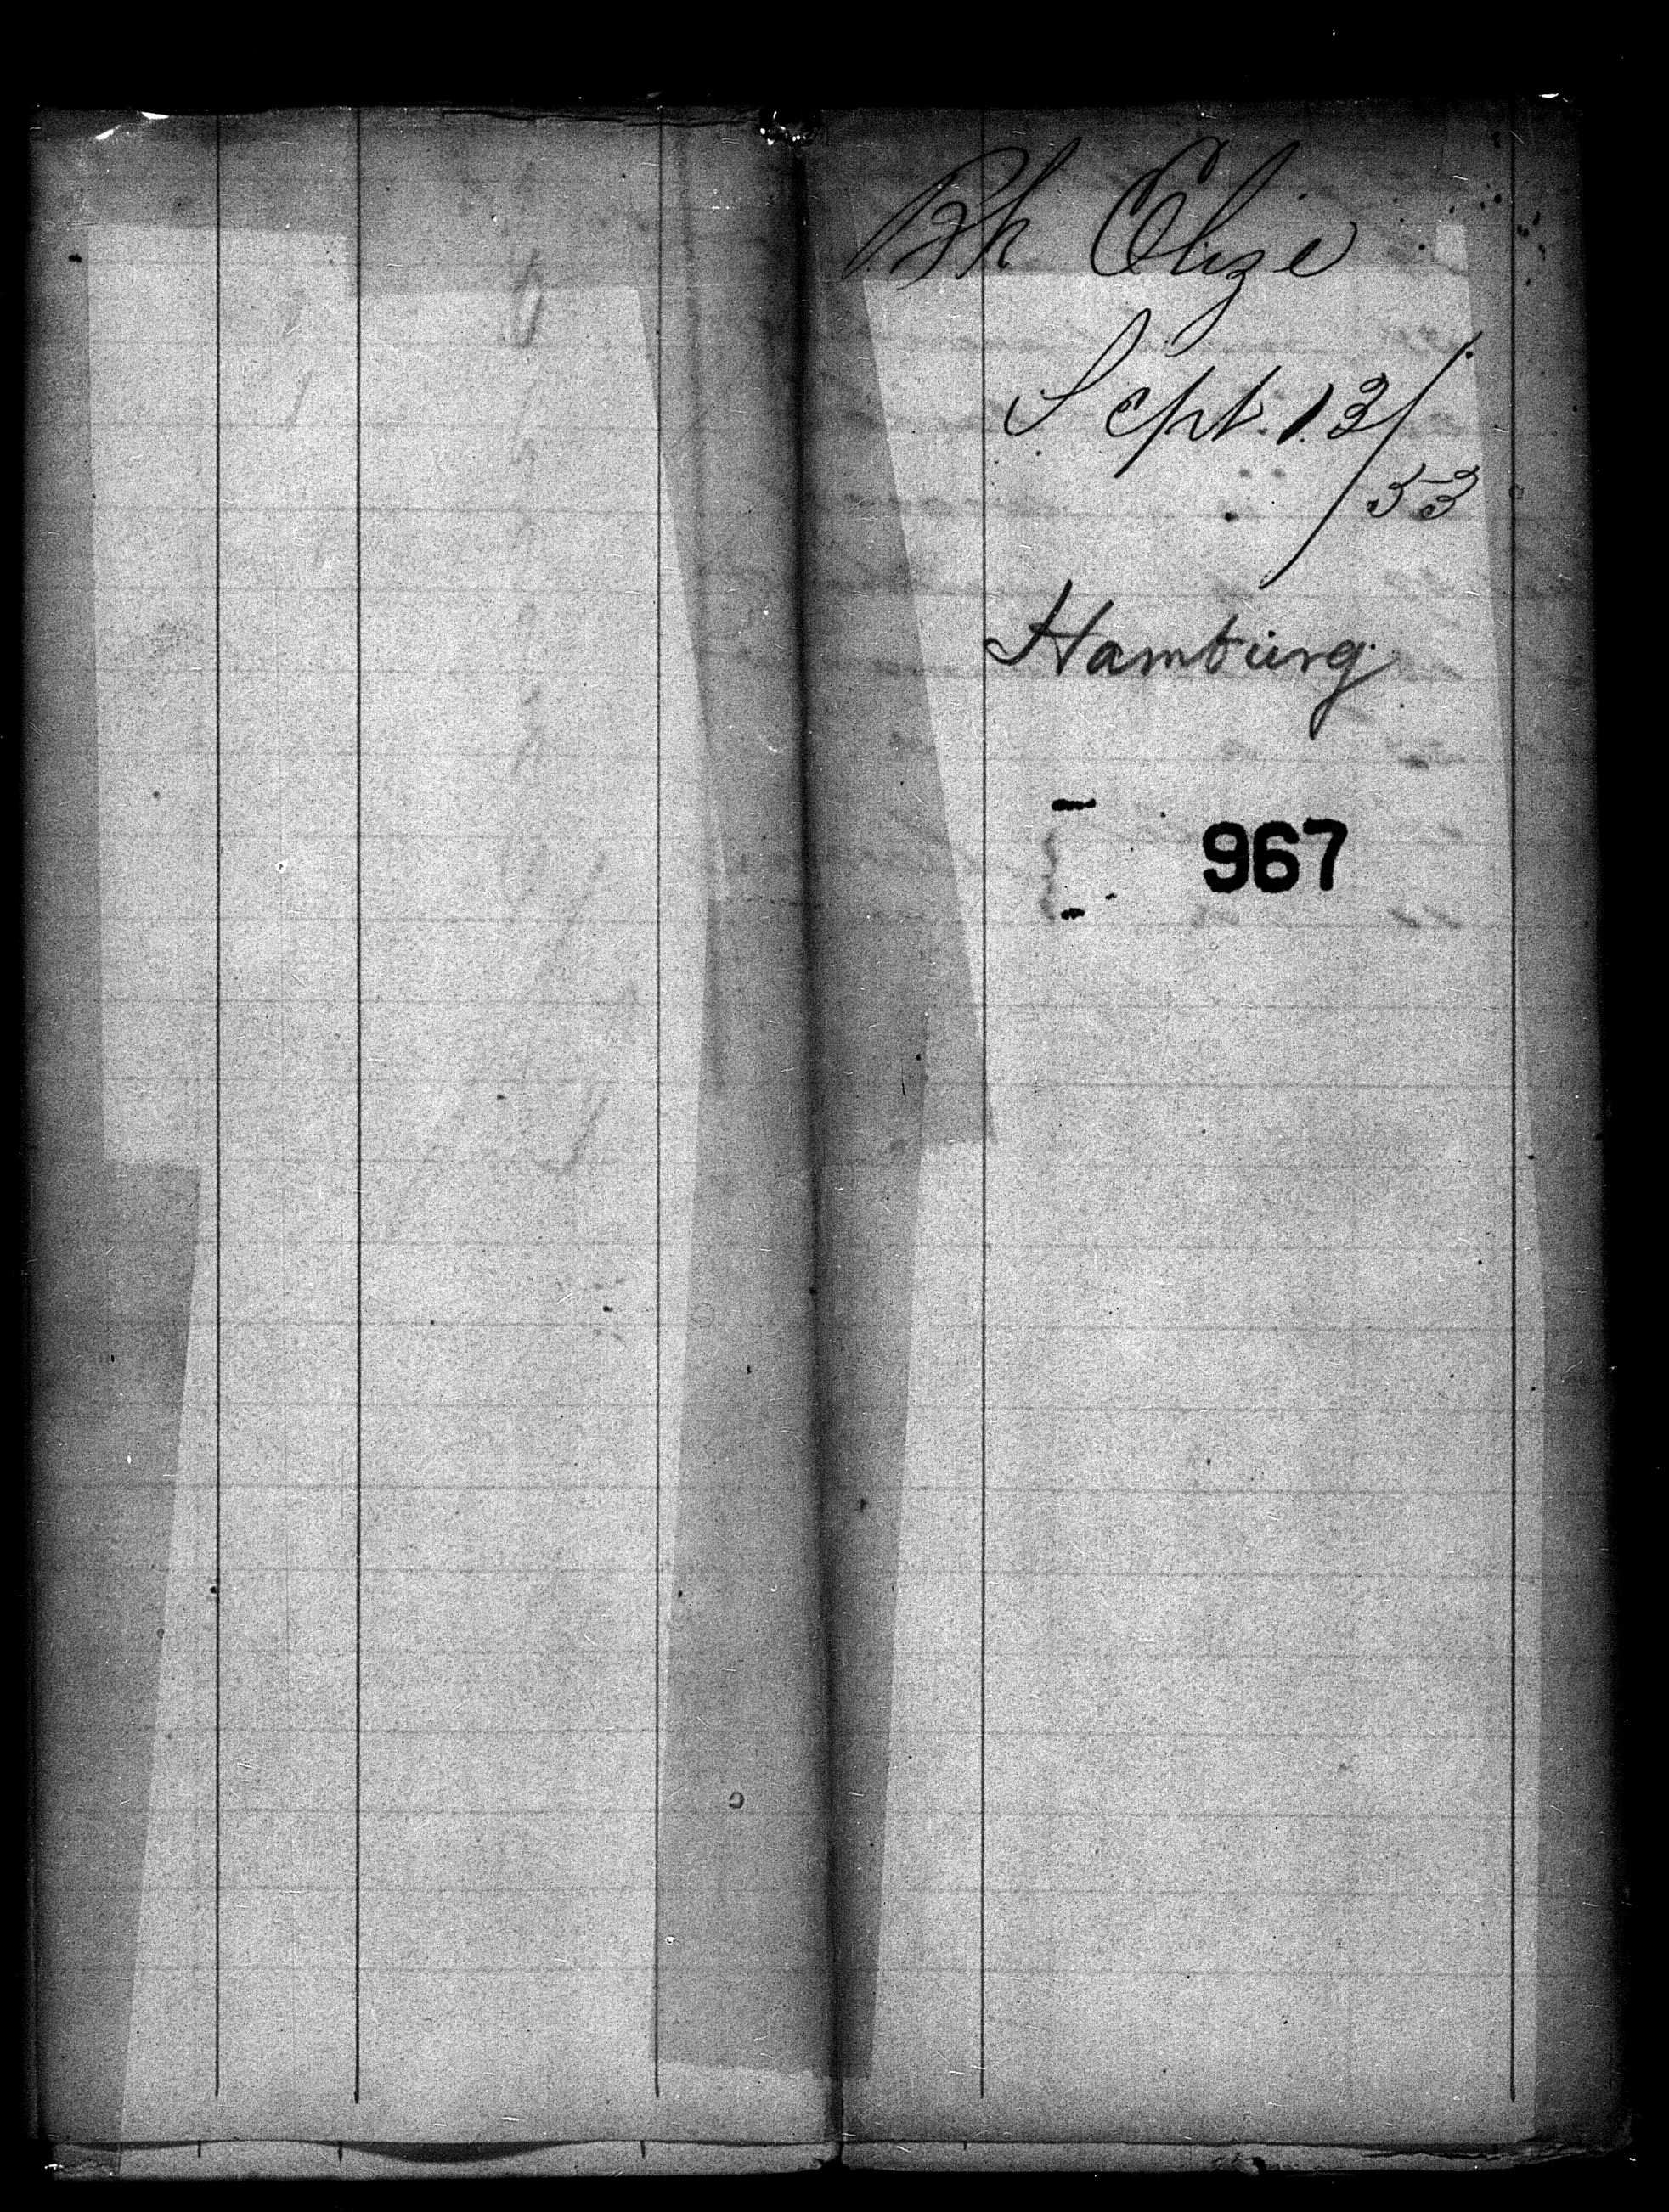 Bk Elize
Sept. 13/
53
Hamburg
967